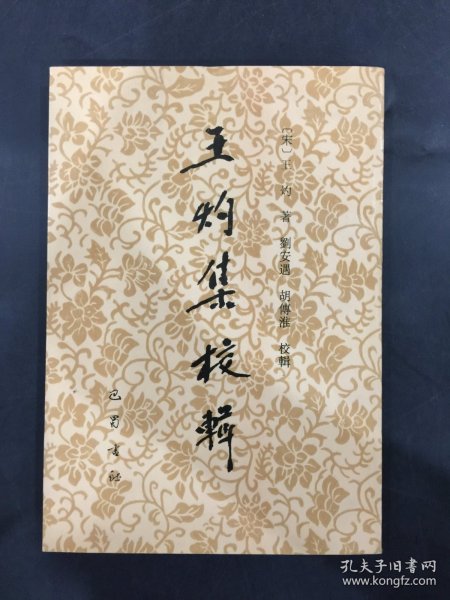 〔宋〕王灼 著 劉安遇 胡傳淮 校輯
王灼集校輯
巴蜀書社
孔夫子旧书网
www.kongfz.com